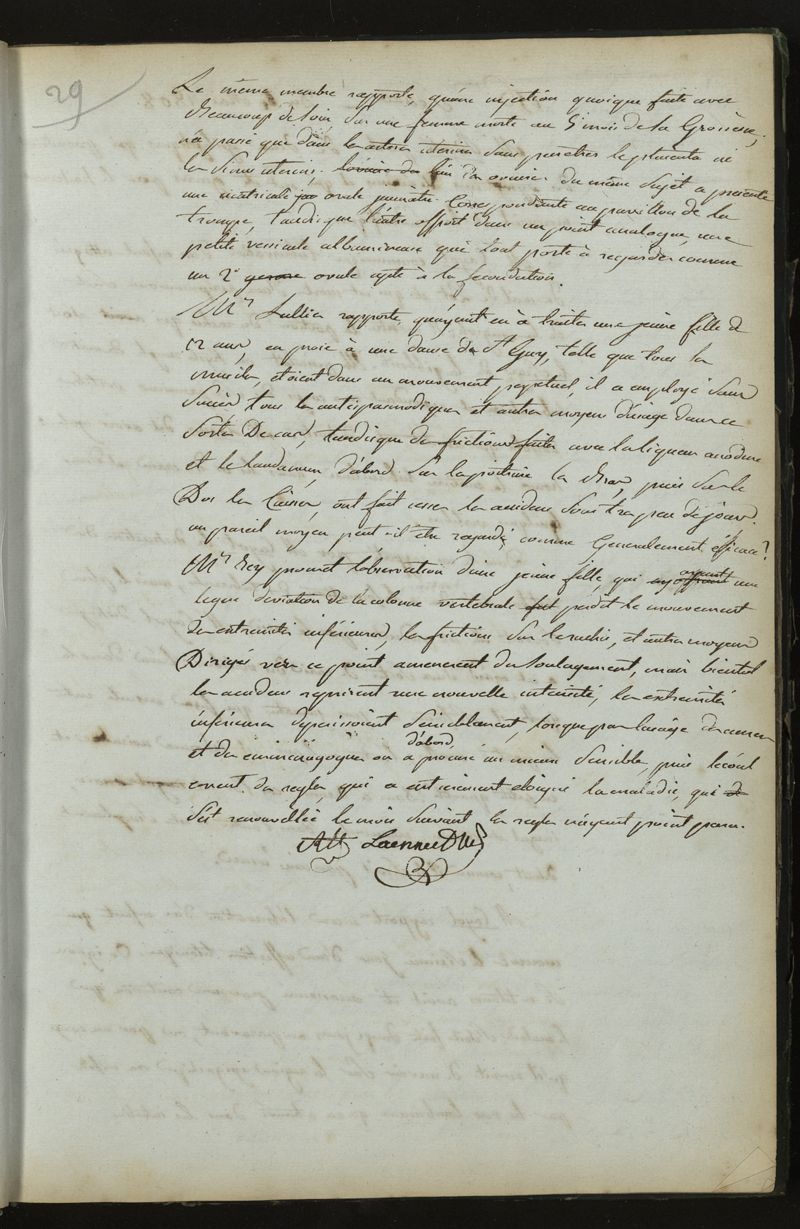 29
Le même membre rapporte, qu'une injection quoique faite avec
Beaucoup de soin sur une femme morte au 5e mois de la Grossesse,
n'a passé que dans les arteres uterines sans penetrer le placenta ni
les sinus uterins; l'ovaire du meme sujet a presenté
une vesicule ovale jaunatre correspondante au pavillon de la
trompe, tandisque l'autre offroit dans un point analogue, une
petite vesicule albumineuse que tout porte à regarder comme
un 2e germe ovule apte à la fecondation.
Mr Lullier rapporte, qu'ayant eu à traiter une jeune fille de
12 ans, en proie à une danse de St Guy, telle que tous les
muscles, etoient dans un mouvement perpetuel, il a employé sans
Succès tous les antispasmodiques et autres moyens d'usage dans ce
sortes De cas, tandisque des frictions faites avec la liqueur anodine
et le laudanum d'abord sur la poitrine les Bras, puis sur le
Dos les Cuisses, ont fait cesser les accidens sous tres peu de jours.
un pareil moyen peut-il etre regardé comme Generalement éfficace?
Mr Rey promet l'observation d'une jeune fille, qui ayant une
legere deviation de la colonne vertebrale perdit le mouvement
des extremités inférieures, les frictions sur le rachis, et autres moyens
Dirigés vers ce point amenerent du soulagement, mais bientot
les accidens reprirent une nouvelle intensité, les extremités
inférieures deperissoient sensiblement, lorsque par l'usage des amers
et des emmenagogues on a procuré d'abord un mieux sensible, puis l'ecoul
ement des regles qui a entierement eloigné la maladie, qui
s'est renouvellée le mois suivant les regles n'ayant point paru.
Laennec DM